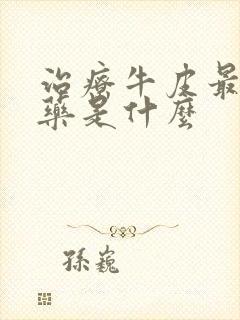 治療牛皮最
藥是什麼
孫巍